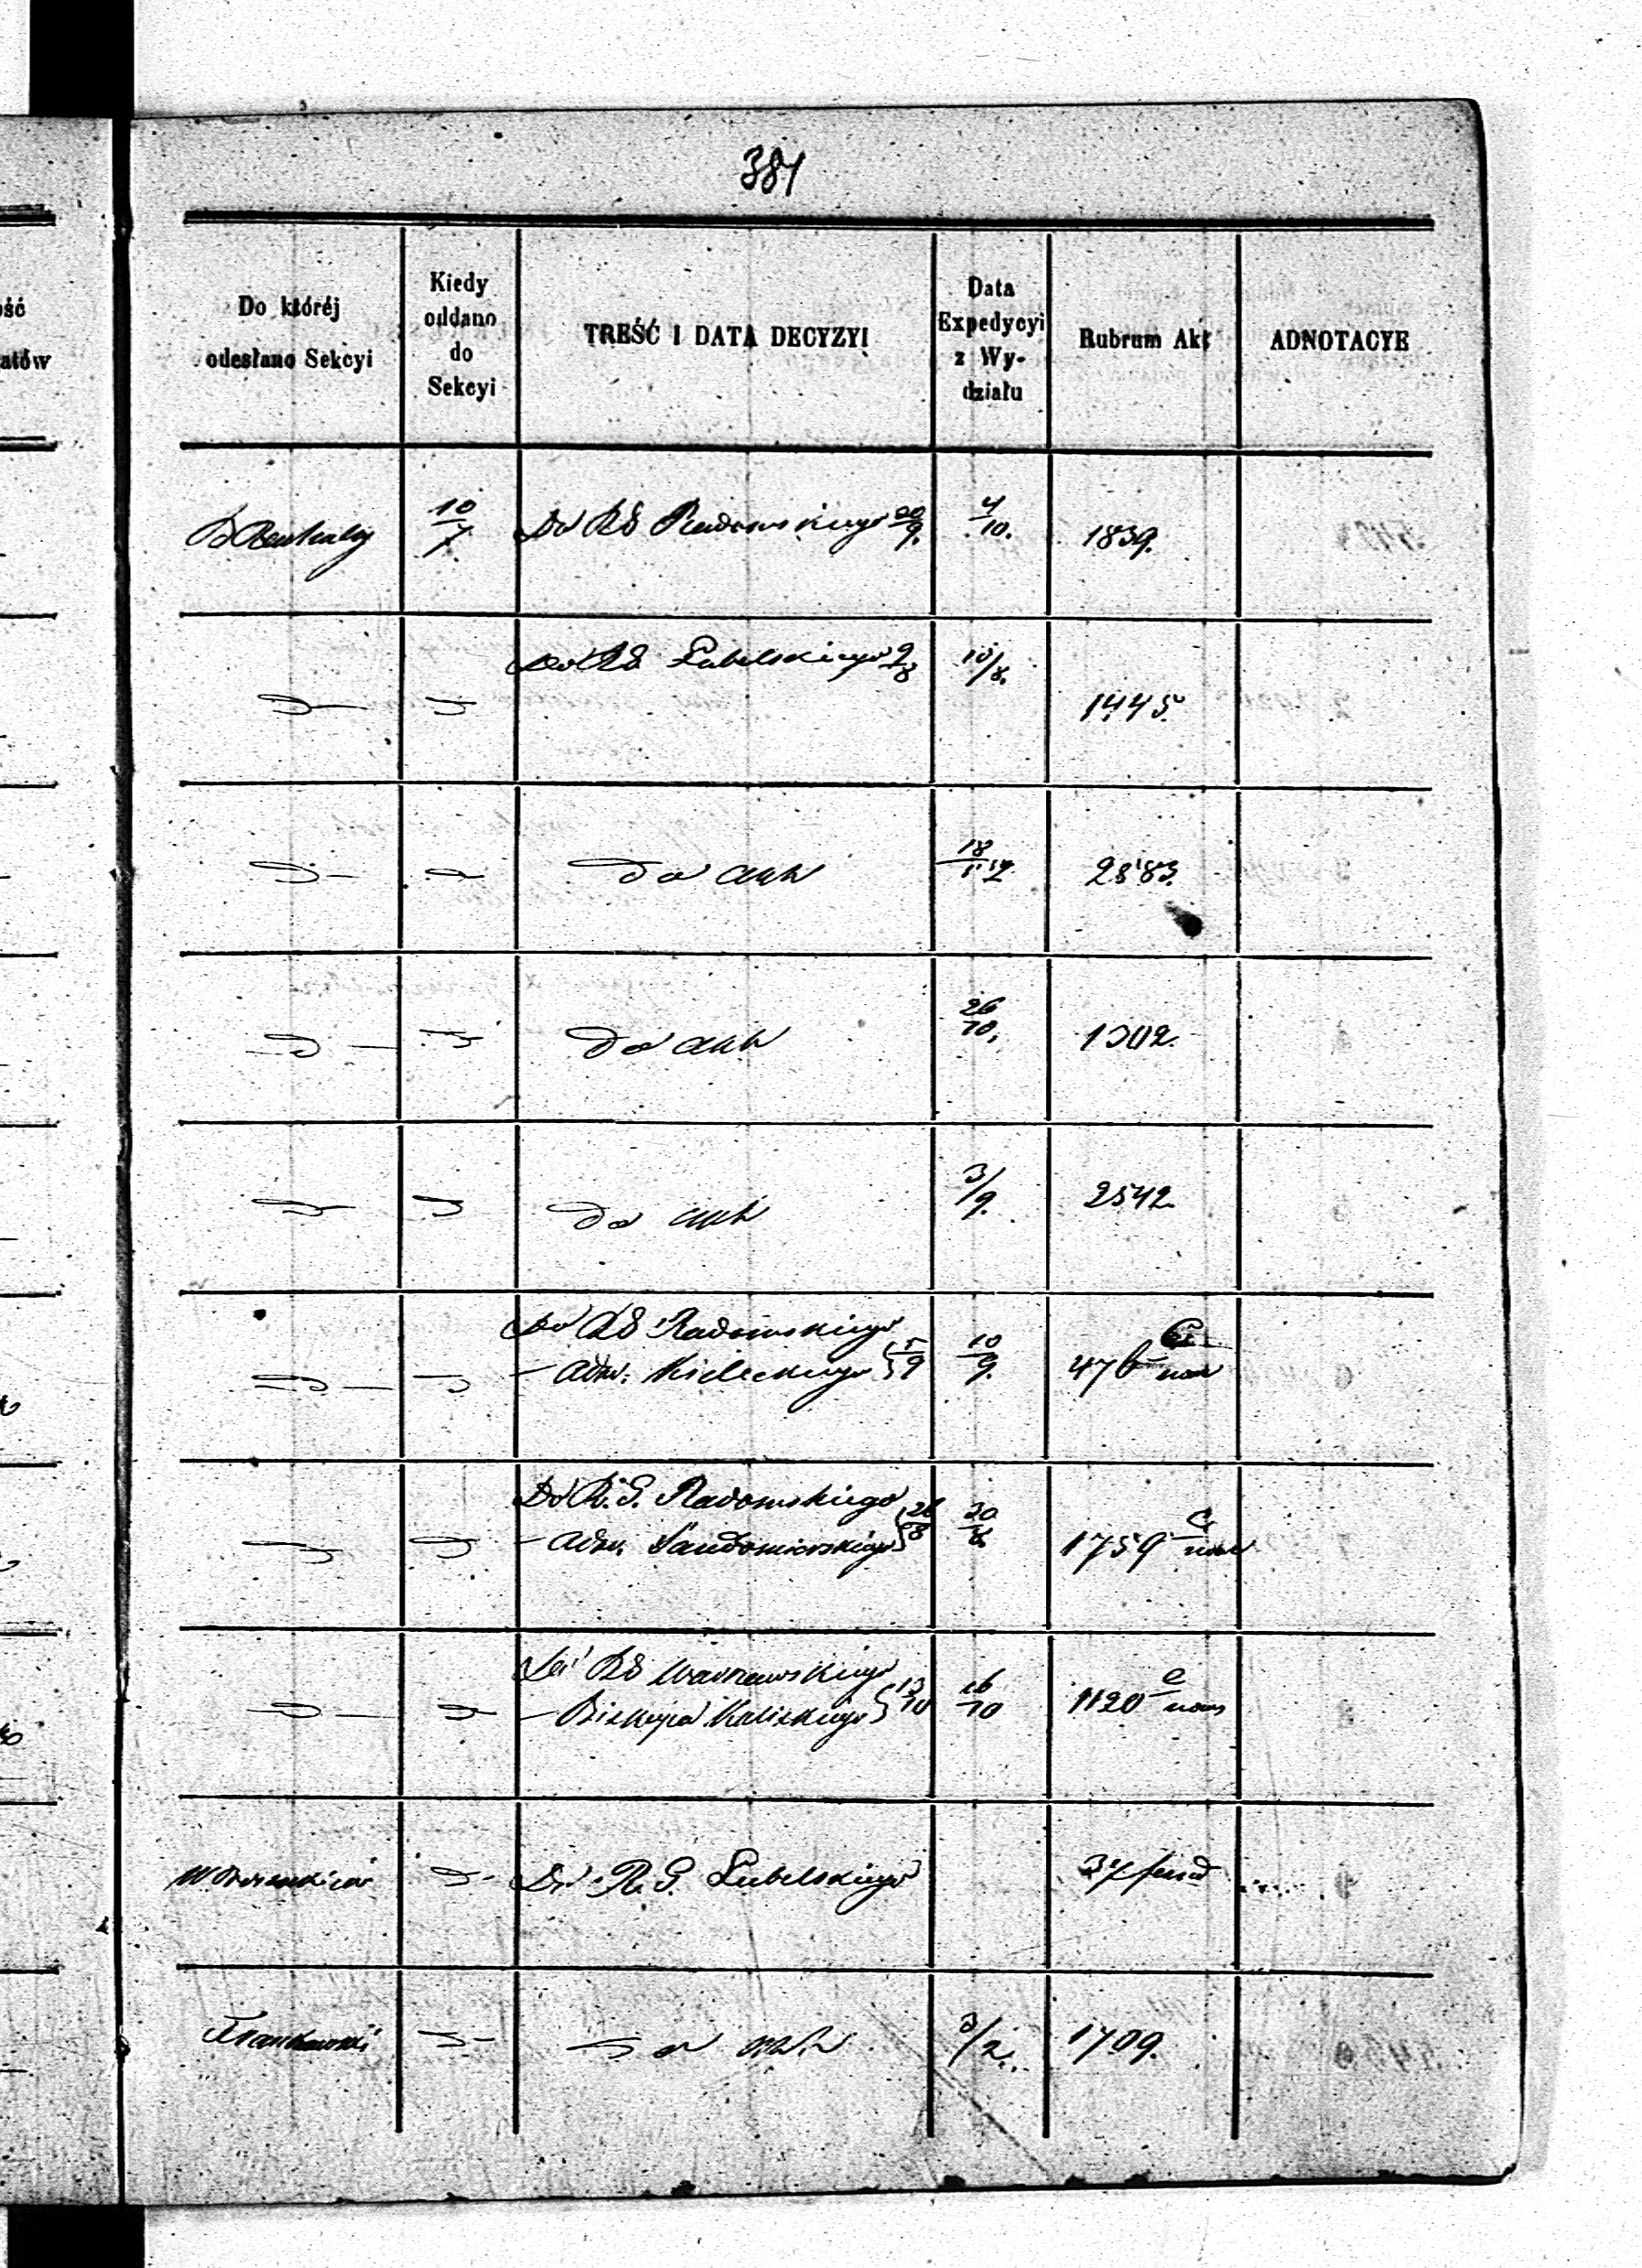 381
ość
atów
Do któréj
odesłano Sekcyi
Kiedy
oddano
do
Sekcyi
TREŚĆ I DATA DECYZYI
Data
Expedycyi
z Wy-
działu
Rubrum Akt
ADNOTACYE
10/7 Do RG Radomskiego 20/9. 4/10. 1839.
Do RG Lubelskiego 9/8 10/8.
1445
Do akt 18/11 2883.
Do akt 26/10. 1302.
Do akt 3/9. 2542.
Do RG Radomskiego
— Adm. Kieleckiego 5/9 10/9. 476
Do R.G. Radomskiego
— Adm. Sandomierskiego 26/8 30/8 1759
Do RG Warszawskiego
— Biskupa Kaliskiego 13/10 16/10 1120
Do R.G. Lubelskiego 37
Do akt 3/2. 1709.